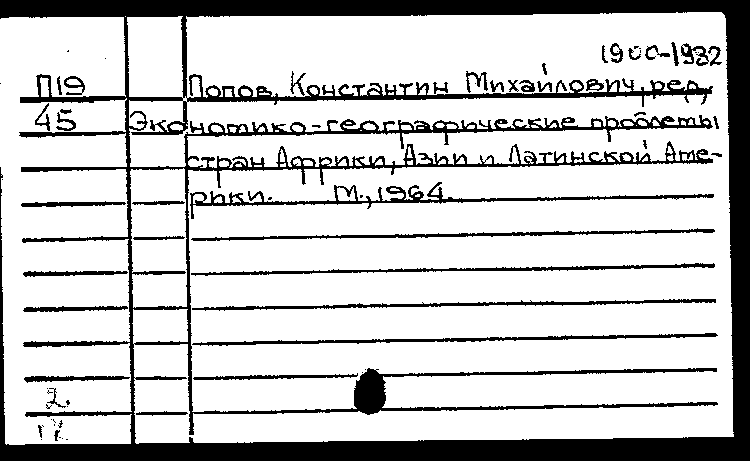 1900-1982
П19 Попов, Константин Михайлович, ред,
45 Экономико-географические проблемы
стран Африки, Азии и Латинской Аме-
рики. М., 1964.
2